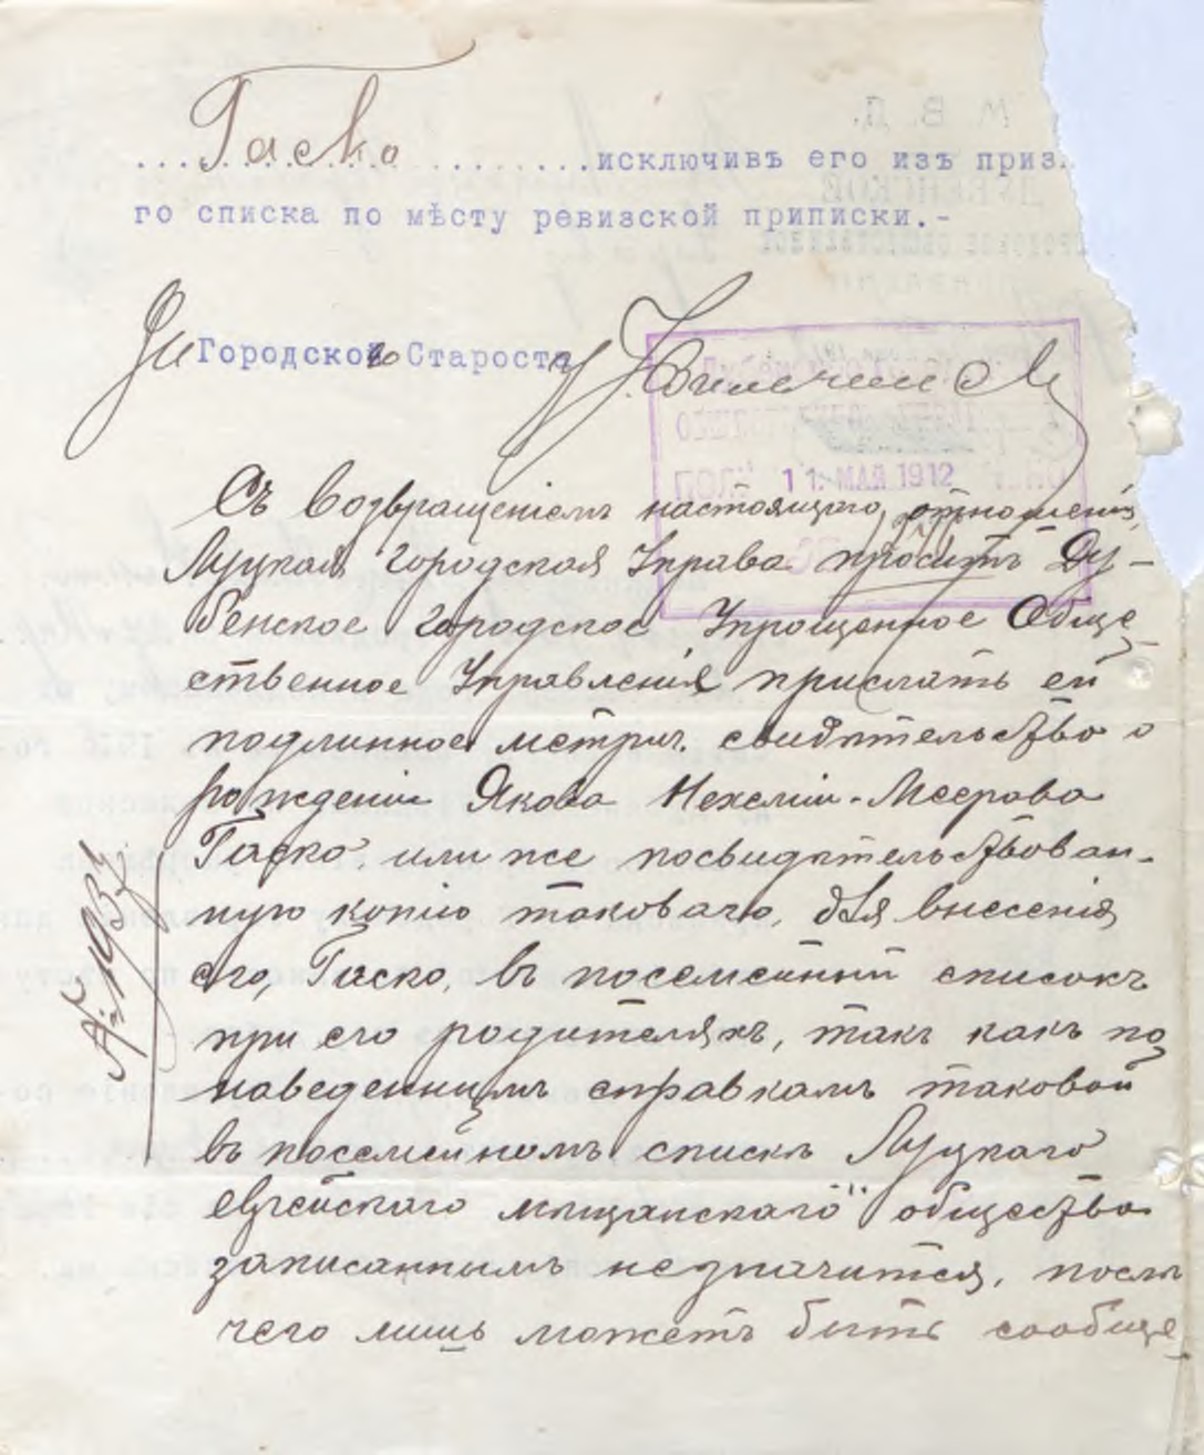 Гаско исключивъ его изъ приз
го списка по мѣсту ревизской приписки.-
За Городского Старосту
11. МАЯ 1912
Съ возвращеніемъ настоящаго отношенія,
Луцкая городская Управа проситъ Ду-
бенское городское Упрощенное Обще-
ственное Управленіе прислать ей
подлинное метрич. свидѣтельство о
рожденіи Якова Нехеміи-Меерова
Гаско, или же посвидѣтельствован-
ную копію таковаго, для внесенія
его, Гаско, въ посемейный списокъ
при его родителяхъ, такъ какъ по
наведеннымъ справкамъ таковой
въ посемейномъ спискѣ Луцкаго
еврейскаго мѣщанскаго общества
записаннымъ незначится, послѣ
чего лишь можетъ быть сообще-